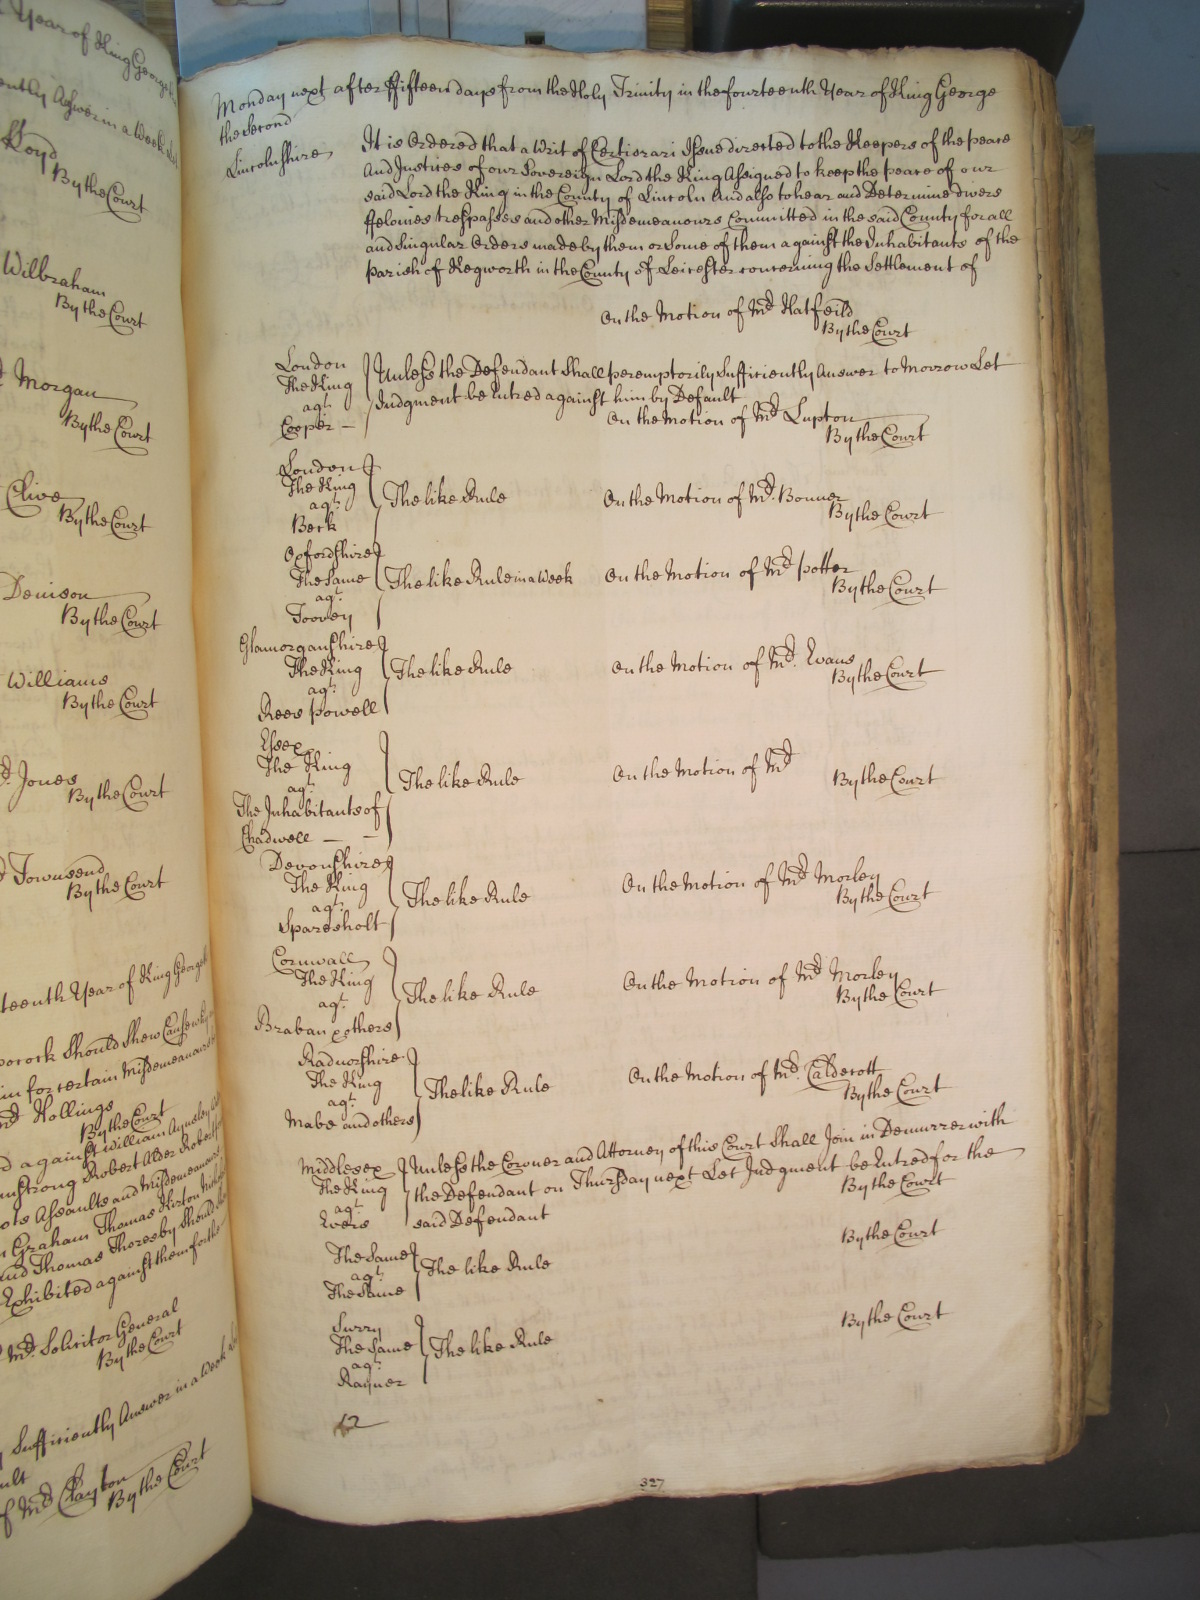 Year of King George
ently Answer in a Week
Lloyd
By the Court
Wilbraham
By the Court
Morgan
By the Court
Clive
By the Court
Denison
By the Court
Williams
By the Court
Jones
By the Court
Townsend
By the Court
teenth Year of King George
should Shew Cause why
in for certain Misdemeanours
Mr Hollings
By the Court
d against William Aynsley
mstrong Robert Alder Robert
Assaults and Misdemeanours
Graham Thomas Kirton
and Thomas Thoresby Should
Exhibited against them for the
Mr. Solicitor General
By the Court
Sufficiently Answer in a Week
ult
of Mr Clayton
By the Court
Monday next after ffifteen days from the Holy Trinity in the fourteenth Year of King George
the Second
Lincolnshire
It is Ordered that a Writ of Certiorari Issue directed to the Keepers of the peace
And Justices of our Sovereign Lord the King Assigned to keep the peace of our
said Lord the King in the County of Lincoln And also to hear and Determine divers
ffelonies trespasses and other Misdemeanours Committed in the said County for all
and Singular Orders made by them or Some of them against the Inhabitants of the
parish of Kegworth in the County of Leicester concerning the Settlement of
On the Motion of Mr Hatfeild
By the Court
London
The King
agt
Cooper
Unless the Defendant Shall peremptorily Sufficiently Answer to Morrow Let
Judgment be Entred against him by Default
On the Motion of Mr Lupton
By the Court
London
The King
agt.
Beck
The like Rule
On the Motion of Mr. Bonner
By the Court
Oxfordshire
The Same
agt.
Toovey
The like Rule in a Week
On the Motion of Mr potter
By the Court
Glamorganshire
The King
agt.
Rees powell
The like Rule
On the Motion of Mr. Evans
By the Court
Essex
The King
agt.
The Inhabitants of
Chadwell
The like Rule
On the Motion of Mr
By the Court
Devonshire
The King
agt.
Sparesholt
The like Rule
On the Motion of Mr Morley
By the Court
Cornwall
The King
agt.
Braban & others
The like Rule
On the Motion of Mr Morley
By the Court
Radnorshire
The King
agt.
Mabe and others
The like Rule
On the Motion of Mr. Caldecott
By the Court
Middlesex
The King
agt.
Evers
Unless the Coroner and Attorney of this Court Shall Join in Demurrer with
the Defendant on Thursday next Let Judgment be Entred for the
said Defendant
By the Court
The Same
agt.
The Same
The like Rule
By the Court
Surry
The Same
agt.
Rayner
The like Rule
By the Court
12
327